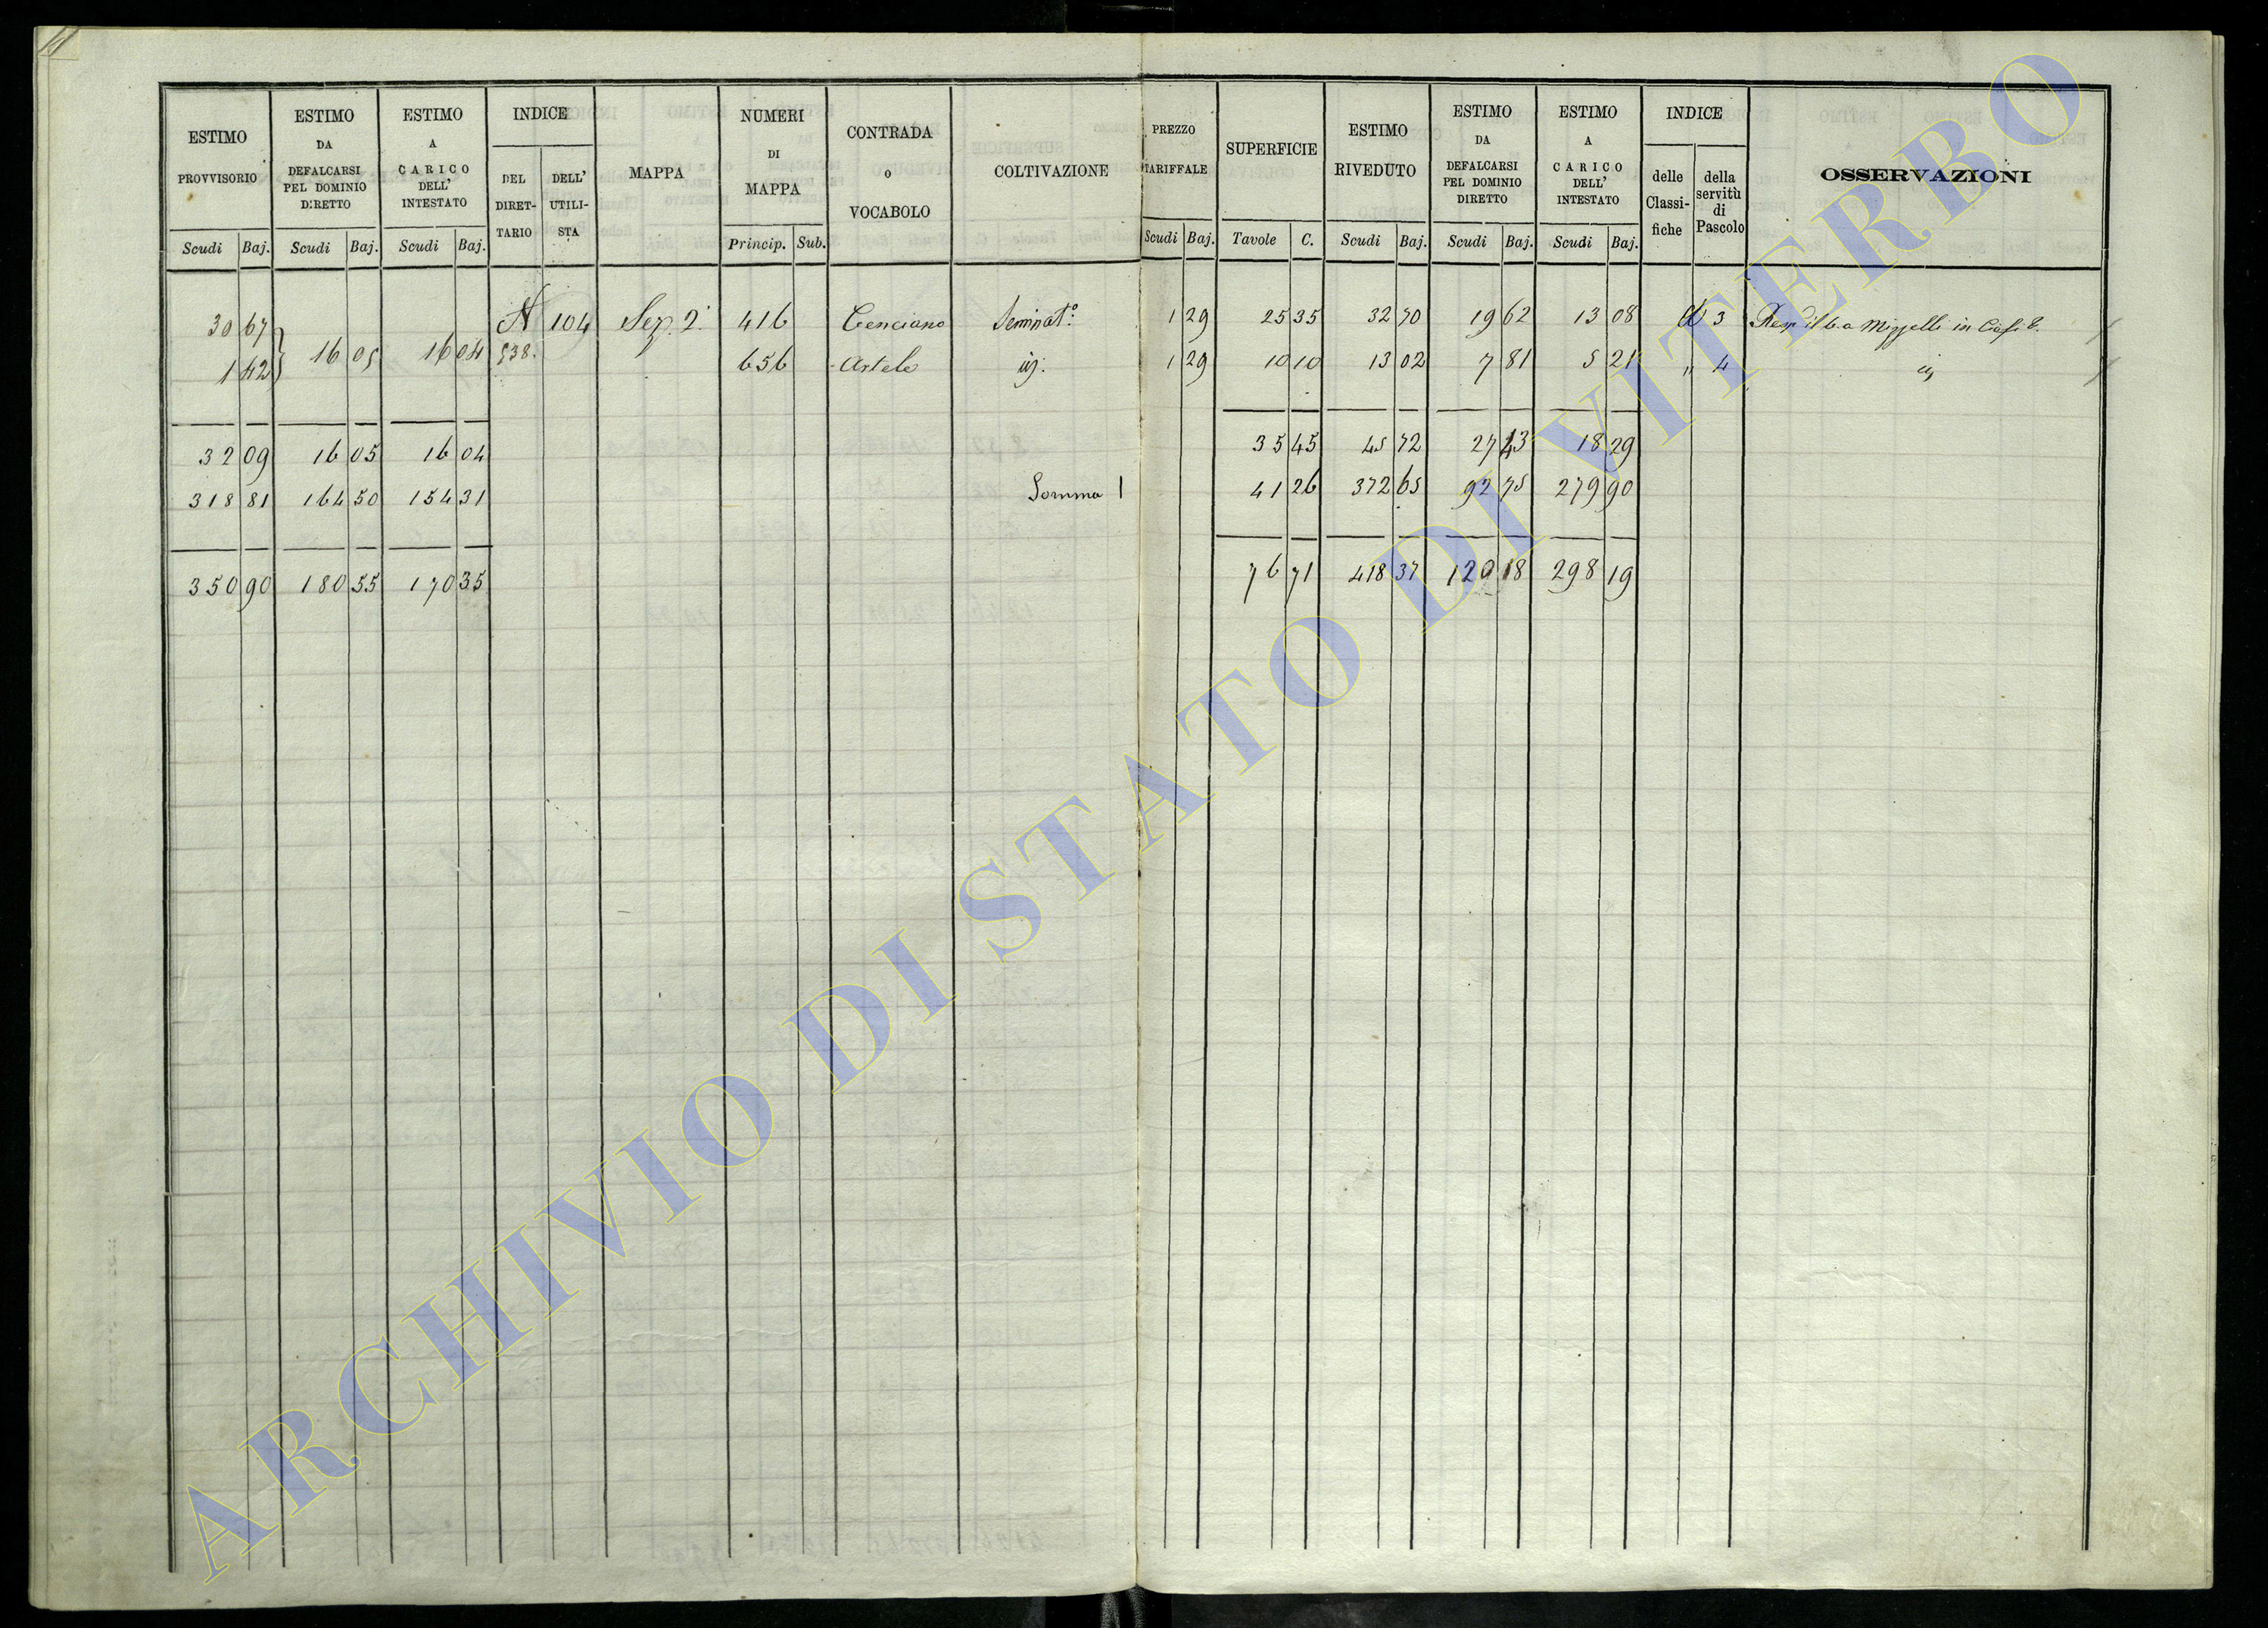 ESTIMO PROVVISORIO | ESTIMO DA DEFALCARSI PEL DOMINIO DIRETTO | ESTIMO A CARICO DELL' INTESTATO | INDICE | MAPPA | NUMERI DI MAPPA | CONTRADA O VOCABOLO | COLTIVAZIONE | PREZZO TARIFFALE | SUPERFICIE | ESTIMO RIVEDUTO | ESTIMO DA DEFALCARSI PEL DOMINIO DIRETTO | ESTIMO A CARICO DELL' INTESTATO | INDICE | OSSERVAZIONI
DEL DIRET-TARIO | DELL' UTILI-STA | delle Classi-fiche | della servitù di Pascolo
Scudi | Baj. | Scudi | Baj. | Scudi | Baj. | Princip. | Sub. | Scudi | Baj. | Tavole | C. | Scudi | Baj. | Scudi | Baj. | Scudi | Baj.
30 67 | A | 104 | Sez. 2. | 416 | Cenciano | Seminat.o | 1 29 | 25 35 | 32 70 | 19 62 | 13 08 | 3
1 42 | 16 05 | 16 04 | 538. | 656 | Artele | id: | 1 29 | 10 10 | 13 02 | 7 81 | 5 21 | " | 4 | id
32 09 | 16 05 | 16 04 | 35 45 | 45 72 | 27 43 | 18 29
318 81 | 164 50 | 154 31 | Somma | 41 26 | 372 65 | 92 75 | 279 90
350 90 | 180 55 | 170 35 | 76 71 | 418 37 | 120 18 | 298 19
ARCHIVIO DI STATO DI VITERBO